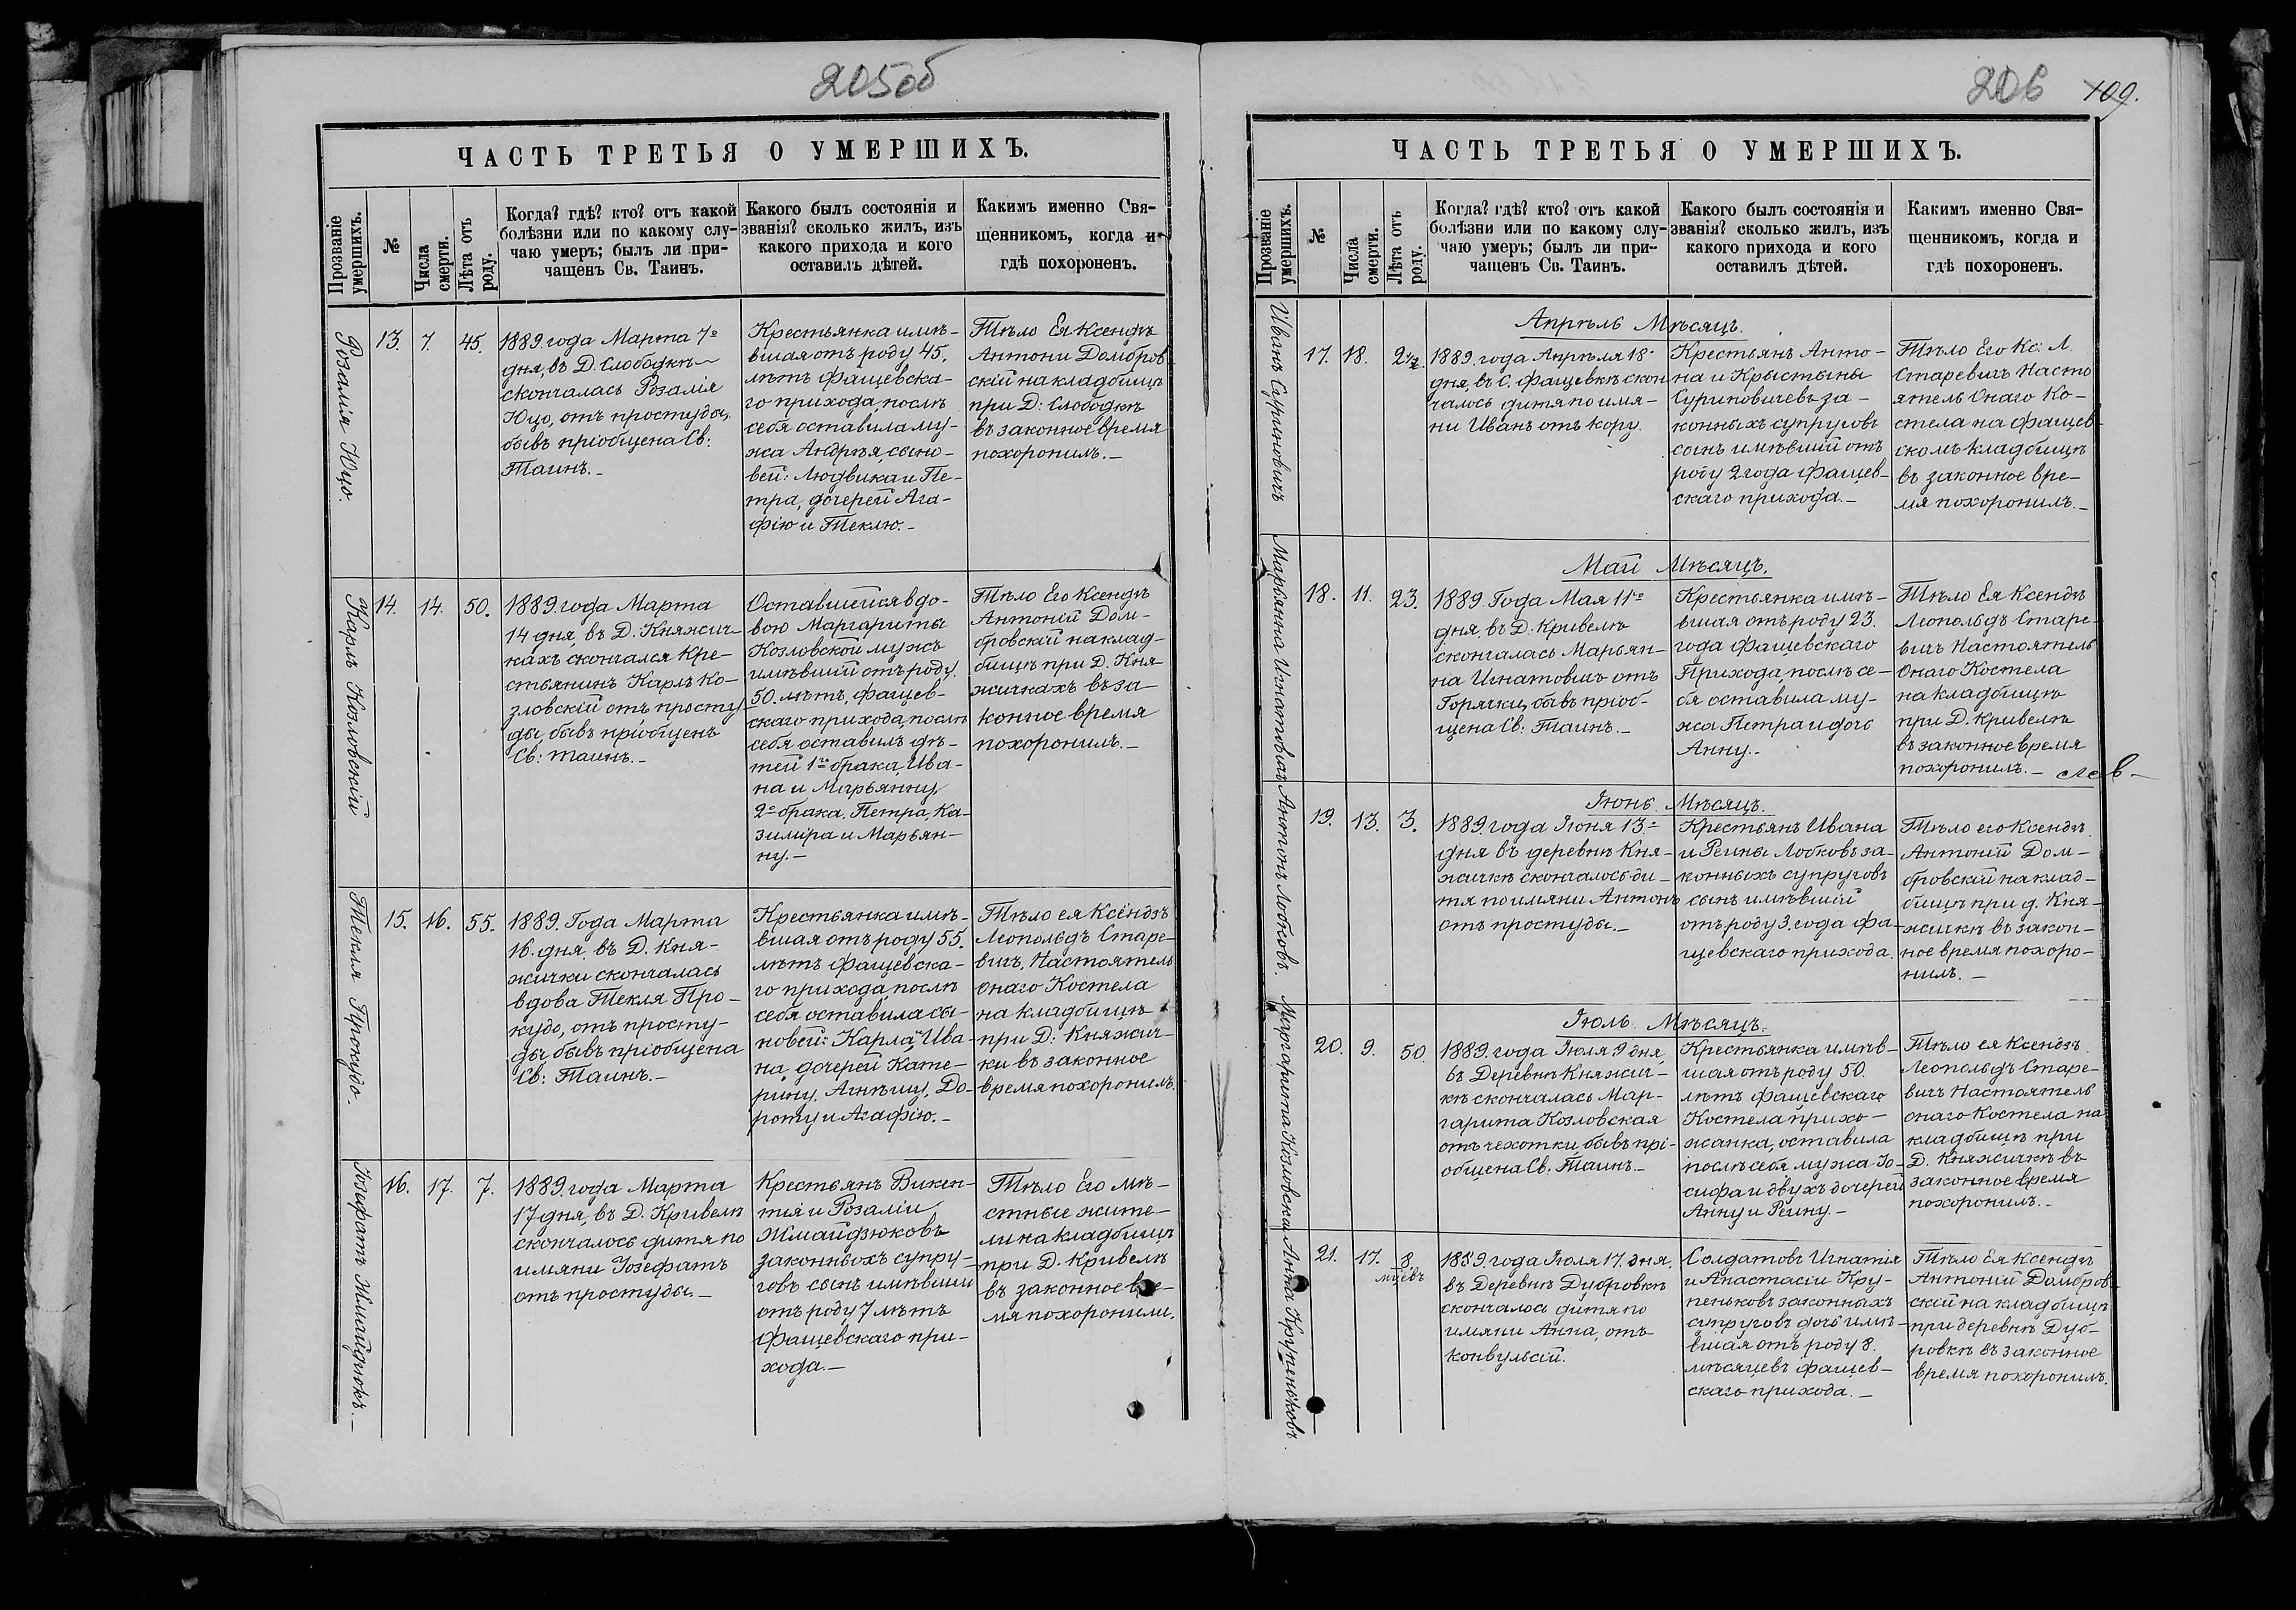 205об
ЧАСТЬ ТРЕТЬЯ О УМЕРШИХЪ.
Прозваніе умершихъ.
№
Числа смерти.
Лѣта отъ роду.
Когда? гдѣ? кто? отъ какой
болѣзни или по какому слу-
чаю умеръ; былъ ли при-
чащенъ Св. Таинъ.
Какого былъ состоянія и
званія? сколько жилъ, изъ
какого прихода и кого
оставилъ дѣтей.
Какимъ именно Свя-
щенникомъ, когда и
гдѣ похороненъ.
Розалія Юцо.
13.
7.
45.
1889. года Марта 7го
дня, въ Д. Слободкѣ
скончалась Розалія
Юцо, отъ простуды,
бывъ пріобщена Св:
Таинъ.
Крестьянка имѣ-
вшая отъ роду 45.
лѣтъ Фащевска-
го прихода, послѣ
себя оставила му-
жа Андрѣя, сыно-
вей: Людвика и Пе-
тра, дочерей Ага-
фію и Теклю.
Тѣло Ея Ксендзъ
Антони Домбров
скій на кладбищѣ
при Д: Слободкѣ
въ законное время
похоронилъ.
Карлъ Козловскій
14.
14.
50.
1889. года Марта
14 дня, въ Д. Княжич-
кахъ скончался Кре-
стьянинъ Карлъ Ко-
зловскій отъ просту
ды, бывъ пріобщенъ
Св: Таинъ.
Оставшейся вдо-
вою Маргариты
Козловской мужъ
имѣвшій отъ роду
50. лѣтъ, Фащев-
скаго прихода, послѣ
себя оставилъ дѣ-
тей 1го брака, Ива-
на и Марьянну,
2го брака. Петра, Ка-
зимира и Марьян-
ну.
Тѣло Его Ксендзъ
Антоній Дом-
бровскій на клад-
бищѣ при Д. Кня-
жичкахъ въ за-
конное время
похоронилъ.
Текля Прокудо.
15.
16.
55.
1889. Года Марта
16. дня, въ Д. Кня-
жички скончалась
вдова Текля Про-
кудо, отъ просту-
ды бывъ пріобщена
Св: Таинъ.
Крестьянка имѣ-
вшая отъ роду 55.
лѣтъ Фащевска-
го прихода, послѣ
себя оставила сы-
новей: Карла, Ива-
на, дочерей Кате-
рину, Агнѣшу, До-
роту и Агафію.
Тѣло ея Ксёндзъ
Леопольдъ Старе-
вичъ, Настоятель
Онаго Костела
на кладбищѣ
при Д: Княжич-
ки въ законное
время похоронилъ.
Іозефатъ Жмайдзюкъ.
16.
17.
7.
1889. года Марта
17 дня, въ Д. Кривелѣ
скончалось дитя по
имяни Іозефатъ
отъ простуды.
Крестьянъ Викен-
тея и Розаліи
Жмайдзюковъ
законныхъ супру-
говъ сынъ имѣвши
отъ роду 7 лѣтъ
Фащевскаго при-
хода.
Тѣло Его мѣ-
стные жите-
ли на кладбищѣ
при Д. Кривелѣ
въ законное вре-
мя похоронили.
206
109.
ЧАСТЬ ТРЕТЬЯ О УМЕРШИХЪ.
Прозваніе умершихъ.
№
Числа смерти.
Лѣта отъ роду.
Когда? гдѣ? кто? отъ какой
болѣзни или по какому слу-
чаю умеръ; былъ ли при-
чащенъ Св. Таинъ.
Какого былъ состоянія и
званія? сколько жилъ, изъ
какого прихода и кого
оставилъ дѣтей.
Какимъ именно Свя-
щенникомъ, когда и
гдѣ похороненъ.
Апрѣль Мѣсяцъ.
Иванъ Суриновичъ
17.
18.
1889. года Апрѣля 18
дня, въ С. Фащевкѣ скон
чалось дитя по имя-
ни Иванъ отъ кору.
Крестьянъ Анто-
на и Крыстыны
Суриновичевъ за-
конныхъ супруговъ
сынъ имѣвшій отъ
роду 2 года Фащев-
скаго прихода.
Тѣло Его Кс: Л.
Старевичъ Насто
ятель Онаго Ко-
стела на Фащев
скомъ кладбищѣ
въ законное вре-
мя похоронилъ.
Май Мѣсяцъ.
Марьянна Игнатович
18.
11.
23.
1889. Года Мая 11го
дня, въ Д: Кривелѣ
скончалась Марьян-
на Игнатовичъ отъ
Горячки, бывъ пріоб-
щена Св: Таинъ.
Крестьянка имѣ-
вшая отъ роду 23.
года Фащевскаго
Прихода, послѣ се-
бя оставила му-
жа Петра и дочь
Анну.
Тѣло Ея Ксендзъ
Леопольдъ Старе
вичъ Настоятель
Онаго Костела
на кладбищѣ
при Д. Кривелѣ
въ законное время
похоронилъ.
Іюнь Мѣсяцъ.
Антонъ Лобковъ.
19.
13.
3.
1889. года Іюня 13го
дня въ деревнѣ Кня-
жичкѣ скончалось ди-
тя по имяни Антонъ
отъ простуды.
Крестьянъ Ивана
и Реины Лобковъ за-
конныхъ супруговъ
сынъ имѣвшій
отъ роду 3. года Фа-
щевскаго прихода.
Тѣло его Ксендзъ
Антоній Дом-
бровскій на клад-
бищѣ при д. Кня-
жичкѣ въ закон-
ное время похоро-
нилъ.
Іюль Мѣсяцъ.
Маргарита Козловская
20.
9.
50.
1889. года Іюля 9 дня
въ Деревнѣ Княжич-
кѣ скончалась Мар-
гарита Козловская
отъ чехотки, бывъ прі-
общена Св: Таинъ.
Крестьянка имѣв-
шая отъ роду 50.
лѣтъ Фащевскаго
Костела прихо-
жанка, оставила
послѣ себя мужа Іо-
сифа и двухъ дочерей
Анну и Реину.
Тѣло ея Ксендзъ
Леопольдъ Старе-
вичъ Настоятель
онаго Костела на
кладбищѣ при
Д. Княжичкѣ въ
законное время
похоронилъ.
Анна Крупеньковъ.
21.
17.
8.
1889. года Іюля 17. дня,
въ Деревнѣ Дубровкѣ
скончалось дитя по
имяни Анна, отъ
конвульсій.
Солдатовъ Игнатія
и Анастасіи Кру-
пеньковъ законныхъ
супруговъ дочь имѣ-
вшая отъ роду 8.
мѣсяцевъ Фащев-
скаго прихода.
Тѣло Ея Ксендзъ
Антоній Домбров
скій на кладбищѣ
при деревнѣ Дуб-
ровкѣ въ законное
время похоронилъ.